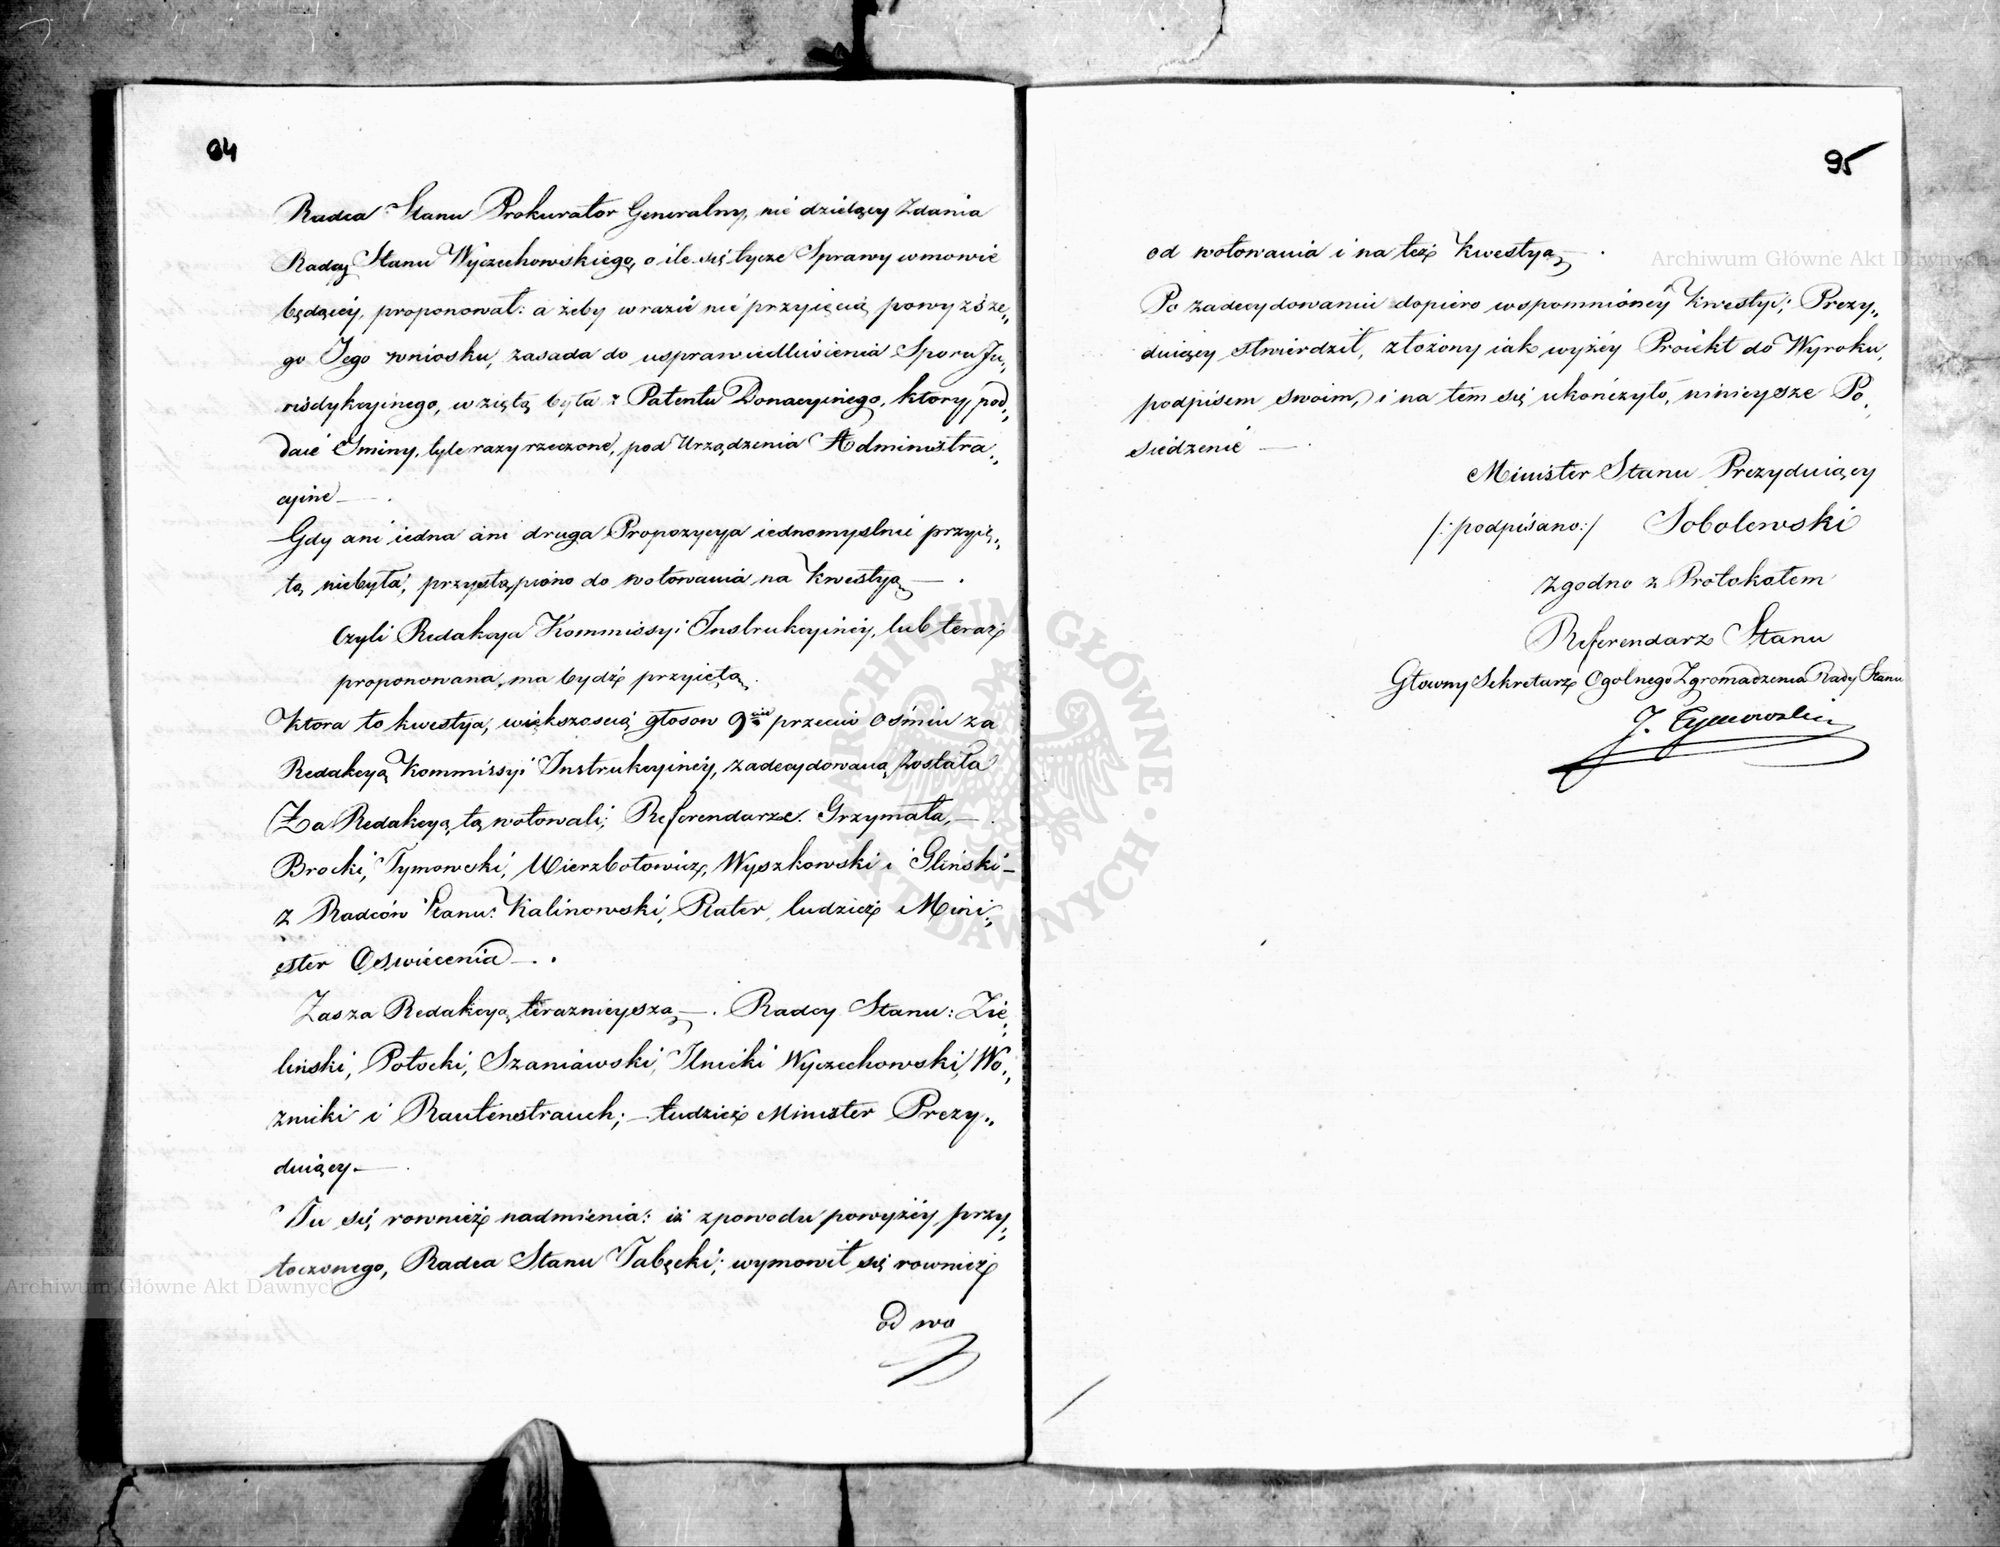 94
Radca Stanu Prokurator Generalny, nie dzielący Zdania
Radcy Stanu Wyczechowskiego, o ile się tycze Sprawy w mowie
będącey, proponował: a żeby w razie nie przyięcia powyższe„
go Jego wniosku, zasada do usprawiedliwienia Sporu Ju„
risdykcyinego, wziętą była z Patentu Donacyinego, ktory pod„
daie Gminy, tyle razy rzeczone, pod Urządzenia Administra„
cyine —.
Gdy ani iedna ani druga Propozycya iednomyslnie przyię„
tą niebyła; przystąpiono do wotowania na kwestyą —.
Czyli Redakcya Kommissyi Instrukcyinéy, lub teraz
proponowana, ma bydź przyiętą.
Która to kwestya, większoscią głosow 9ciu przeciw ośmiu za
Redakcyą Kommissyi Instrukcyinéy, zadecydowaną została
Za Redakcyą tą wotowali; Referendarze. Grzymała, —
Brocki, Tymowski, Wierzbołowicz, Wyszkowski i Gliński —
z Radców Stanu: Kalinowski, Plater, tudzież Mini„
ster Oswiecenia —.
Zas za Redakcyą teraznieyszą —. Radcy Stanu: Zie„
liński, Potocki, Szaniawski, Ilnicki Wyczechowski, Wo„
znicki i Rautenstrauch; — tudzież Minister Prezy„
duiący —.
Tu się rownież nadmienia: iż z powodu powyżéy przy„
toczonego, Radca Stanu Tabęcki; wymowił się rownież
od wo
95
od wotowania i na też kwestyą —.
Po zadecydowaniu dopiero wspomnionéy Kwestyi; Prezy„
duiący stwierdził, złożony iak wyżéy Proiekt do Wyroku,
podpisem swoim, i na tem się ukończyło, ninieysze Po„
siedzenie —.
Minister Stanu Prezyduiący
/: podpisano :/ Sobolewski
Zgodno z Protokołem
Referendarz Stanu
Głowny Sekretarz Ogolnego Zgromadzenia Rady Stanu
J. Tymowski
Archiwum Główne Akt Dawnych
Archiwum Główne Akt Dawnych
ARCHIWUM GŁÓWNE AKT DAWNYCH